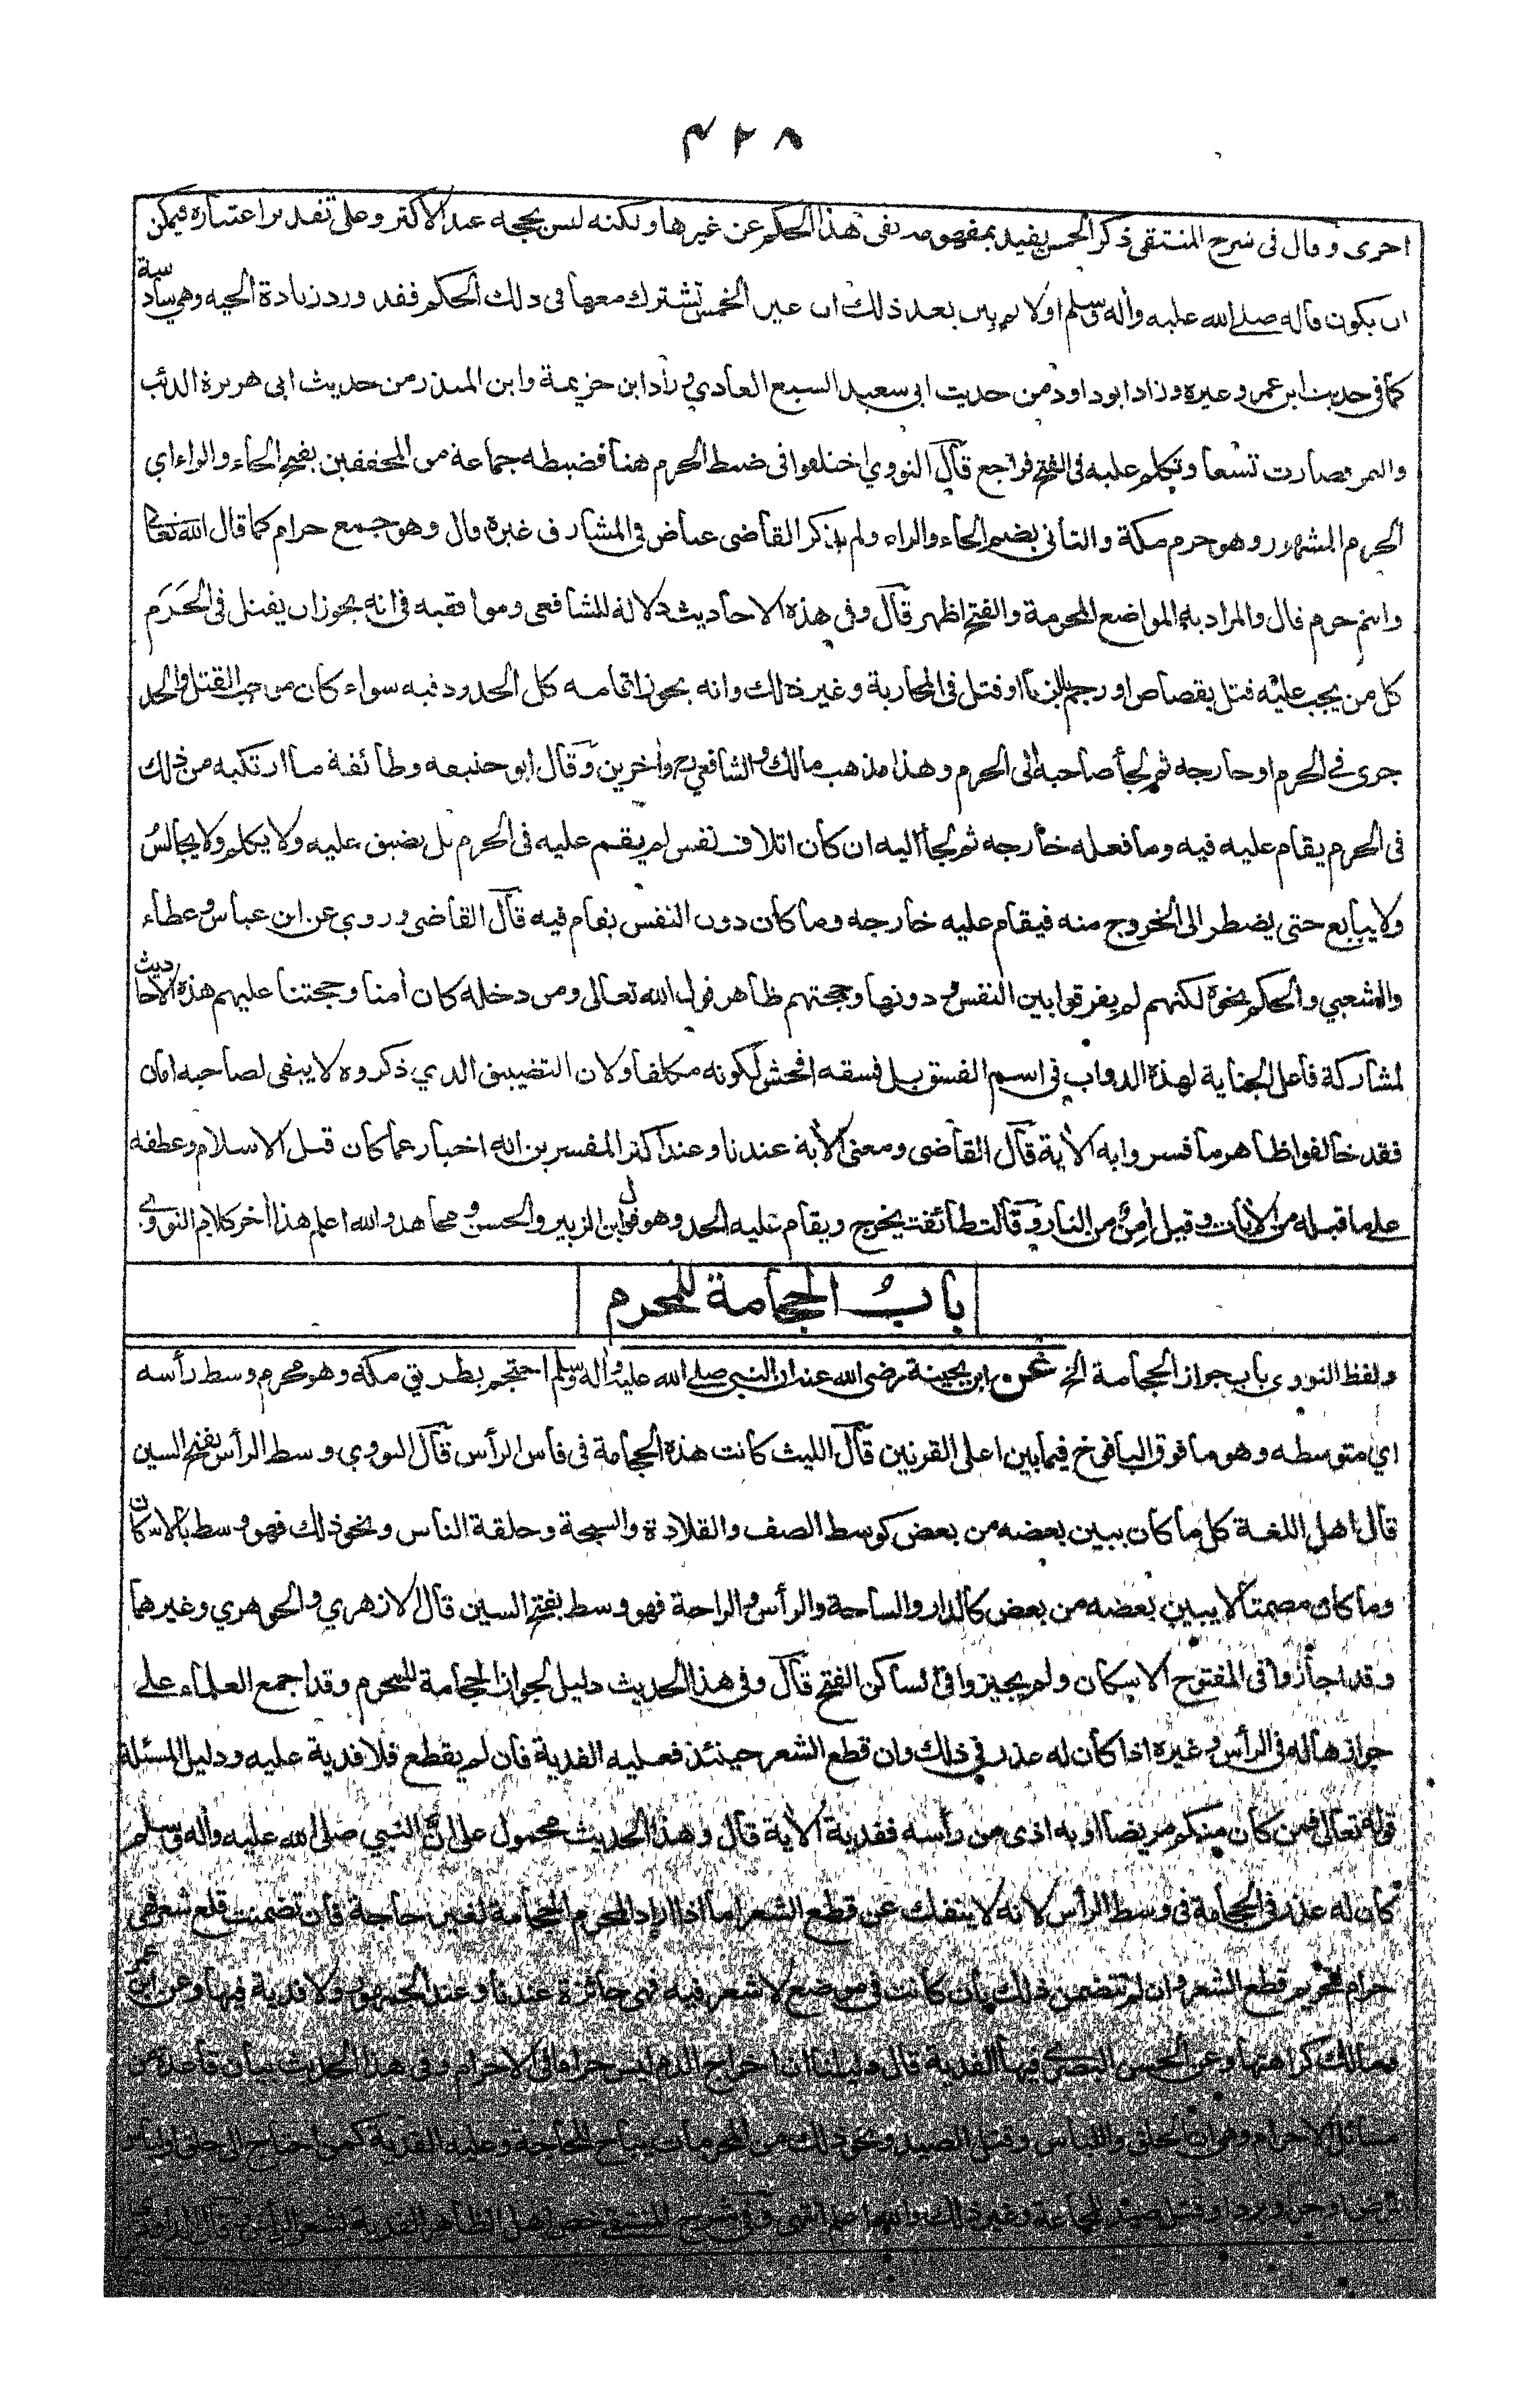 ۴۲۸
اخرى وقال فى شرح المنتقى ذكر الخمس يفيد بمفهومه نفى هذا الحكم عن غيرها ولكنه ليس بحجة عند الاكثر وعلى تقدير اعتباره فيمكن
ان يكون قاله صلى الله عليه وأله وسلم اولا ثم بين بعد ذلك ان غير الخمس تشترك معها فى ذلك الحكم فقد ورد زيادة الحية وهي سادسة
كما فى حديث ابن عمر وغيره وزاد ابو داود من حديث ابى سعيد السبع العادي وزاد ابن خزيمة وابن المنذر من حديث ابى هريرة الذئب
والنمر فصارت تسعا وتكلم عليه فى الفتح فراجع قال النووي اختلفوا فى ضبط الحرم هنا فضبطه جماعة من المحققين بفتح الحاء والراء اي
الحرم المشهور وهو حرم مكة والثانى بضم الحاء والراء ولم يذكر القاضى عياض فى المشارق غيره وقال وهو جمع حرام كما قال الله تعالى
وانتم حرم قال والمراد به المواضع المحرمة والفتح اظهر قال وفى هذه الاحاديث دلالة للشافعى وموافقيه فى انه يجوز ان يقتل فى الحَرَم
كل من يجب عليه قتل بقصاص او رجم بالزنا او قتل فى المحاربة وغير ذلك وانه يجوز اقامة كل الحدود فيه سواء كان موجب القتل والحد
جرى فى الحرم او خارجه ثم لجأ صاحبه الى الحرم وهذا مذهب مالك والشافعي رح وأخرين وقال ابو حنيفه وطائفة ما ارتكبه من ذلك
فى الحرم يقام عليه فيه وما فعله خارجه ثم لجأ اليه ان كان اتلاف نفس لم يقم عليه فى الحرم بل يضيق عليه ولا يكلم ولا يجالس
ولا يبايع حتى يضطر الى الخروج منه فيقام عليه خارجه وما كان دون النفس يقام فيه قال القاضى وروي عن ابن عباس وعطاء
والشعبي والحكم نحوه لكنهم لم يفرقوا بين النفس ودونها وحجتهم ظاهر قول الله تعالى ومن دخله كان أمنا وحجتنا عليهم هذه الاحاديث
لمشاركة فاعل الجناية لهذه الدواب فى اسم الفسق بل فسقه افحش لكونه مكلفا ولان التضييق الذي ذكروه لا يبقى لصاحبه امان
فقد خالفوا ظاهر ما فسروا به الأية قال القاضى ومعنى الأية عندنا وعند اكثر المفسرين انه اخبار عما كان قبل الاسلام وعطفه
على ما قبله من الأيات وقيل أمن من النار وقالت طائفة يخرج ويقام عليه الحد وهو قول ابن الزبير والحسن ومجاهد والله اعلم هذا أخر كلام النووي
باب الحجامة للمحرم
ولفظ النووي باب جواز الحجامة الخ عن ابن بحينة رضى الله عنه ان النبى صلى الله عليه وأله وسلم احتجم بطريق مكة وهو محرم وسط رأسه
اي متوسطه وهو ما فوق اليافوخ فيما بين اعلى القرنين قال الليث كانت هذه الحجامة فى فاس الرأس قال النووي وسط الرأس بفتح السين
قال اهل اللغة كل ما كان يبين بعضه من بعض كوسط الصف والقلادة والسبحة وحلقة الناس ونحو ذلك فهو وسط بالاسكان
وما كان مصمتا لا يبين بعضه من بعض كالدار والساحة والرأس والراحة فهو وسط بفتح السين قال الازهري والجوهري وغيرهما
وقد اجازوا فى المفتوح الاسكان ولم يجيزوا فى الساكن الفتح قال وفى هذا الحديث دليل لجواز الحجامة للمحرم وقد اجمع العلماء على
جوازها له فى الرأس وغيره اذا كان له عذر فى ذلك وان قطع الشعر حينئذ فعليه الفدية فان لم يقطع فلا فدية عليه ودليل المسئلة
قوله تعالى فمن كان منكم مريضا او به اذى من رأسه ففدية الأية قال وهذا الحديث محمول على ان النبي صلى الله عليه وأله وسلم
كان له عذر فى الحجامة فى وسط الرأس لانه لا ينفك عن قطع الشعر اما اذا اراد المحرم الحجامة لغير حاجة فان تضمنت قلع شعر فهى
حرام لتحريم قطع الشعر وان لم تتضمن ذلك بان كانت فى موضع لا شعر فيه فهى جائزة عندنا وعند الجمهور ولا فدية فيها وعن ابن عمر
ومالك كراهتها وعن الحسن البصري فيها الفدية قال دليلنا ان اخراج الدم ليس حراما فى الاحرام وفى هذا الحديث بيان قاعدة من
مسائل الاحرام وهى ان الحلق واللباس وقتل الصيد ونحو ذلك من المحرمات يباح للحاجة وعليه الفدية كمن احتاج الى حلق او لباس
لمرض او حر او برد او قتل صيد للمجاعة وغير ذلك والله اعلم انتهى وفى شرح المنتقى خص اهل الظاهر الفدية بشعر الرأس وقال الداودي